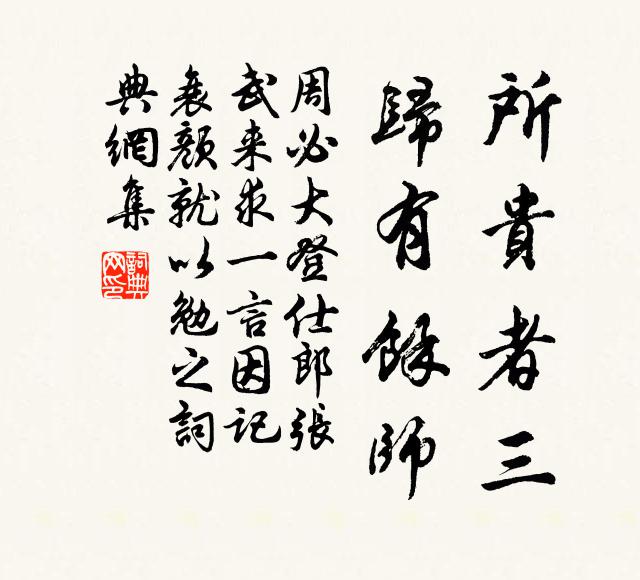 所貴者三
歸有餘師
周必大登仕郎張
武来求一言因記
顏就以勉之詞
典網集
詞典
网印